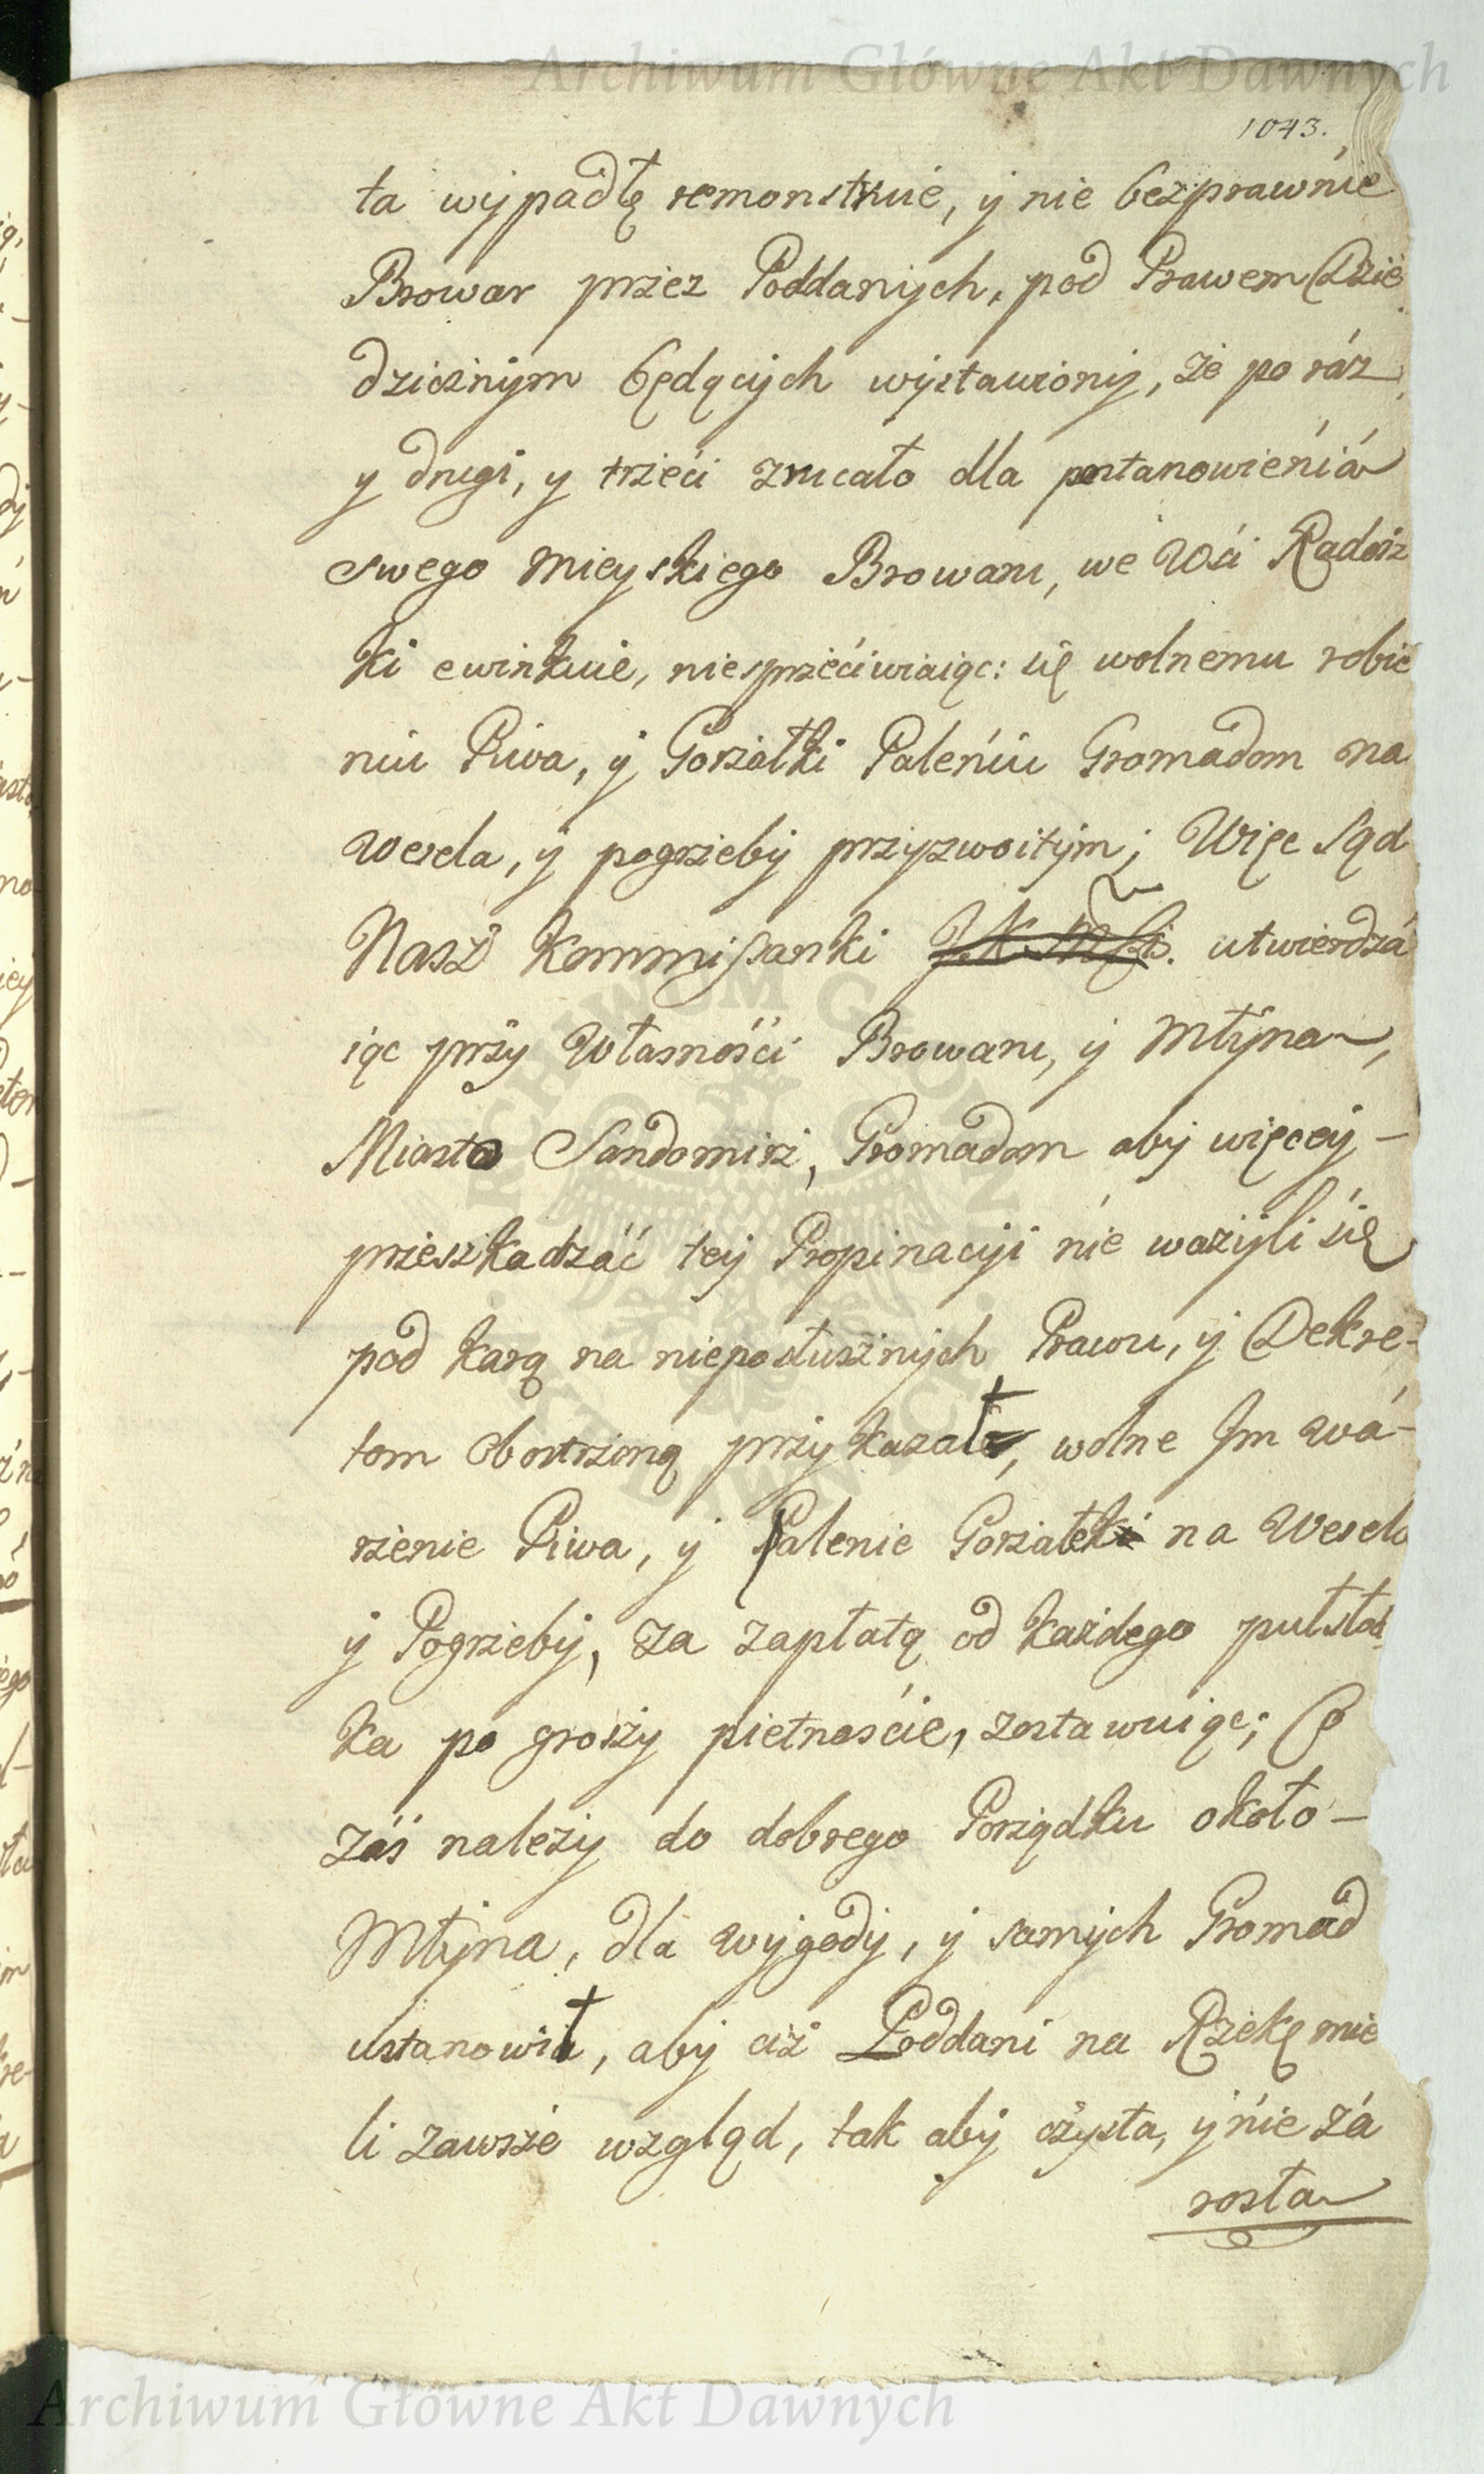 Archiwum Główne Akt Dawnych
1043.
ta wypadłę remonstruie, y nie bezprawnie
Browar przez Poddanych, pod Prawem Dzie
dzicznym będących wystawiony, że po ráz
y drugi, y trzeci zrucało dla postanowieniá
swego Mieyskiego Browaru, we Wsi Radosz
ki ewinkuie, niesprzeciwiaiąc: się wolnemu robie
niu Piwa, y Gorzałki Paleniu Gromadom na
Wesela, y pogrzeby przyzwoitym; Więc Sąd
Nasz Kommissarski J. K. Mści. utwierdzá
iąc przy Własności Browaru, y Młyna,
Miasto Sandomirz, Gromadom aby więcey –
przeszkadzáć tey Propinacyi nie ważyli się
pod karą na nieposłusznych Prawu, y Dekre-
tom obostrzoną przykazał, wolne Im Wá-
rzenie Piwa, y Palenie Gorzałki na Wesela
y Pogrzeby, za zapłatą od każdego pułstat
ka po groszy pietnaście, zostawuiąc; Co
záś należy do dobrego Porządku około –
Młyna, dla wygody, y samych Gromad
ustanowił, aby ciż Poddani na Rzekę mie
li zawsze wzgląd, tak aby czysta, y nie zá
rosła
ARCHIWUM GŁÓWNE AKT DAWNYCH
Archiwum Główne Akt Dawnych